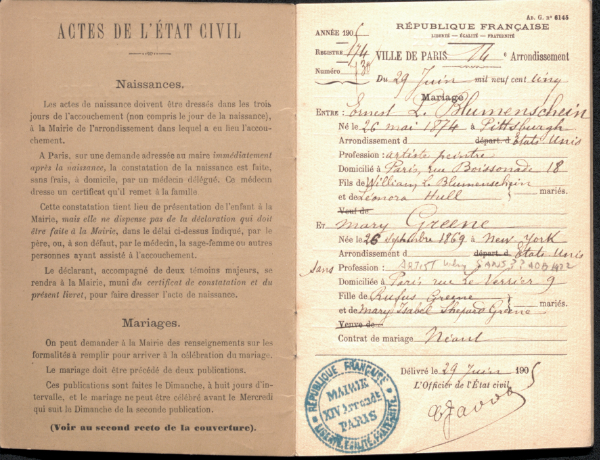 ACTES DE L'ÉTAT CIVIL
Naissances.
Les actes de naissance doivent être dressés dans les trois
jours de l'accouchement (non compris le jour de la naissance),
à la Mairie de l'arrondissement dans lequel a eu lieu l'accou-
chement.
A Paris, sur une demande adressée au maire immédiatement
après la naissance, la constatation de la naissance est faite,
sans frais, à domicile, par un médecin délégué. Ce médecin
dresse un certificat qu'il remet à la famille.
Cette constatation tient lieu de présentation de l'enfant à la
Mairie, mais elle ne dispense pas de la déclaration qui doit
être faite à la Mairie, dans le délai ci-dessus indiqué, par le
père, ou, à son défaut, par le médecin, la sage-femme ou autres
personnes ayant assisté à l'accouchement.
Le déclarant, accompagné de deux témoins majeurs, se
rendra à la Mairie, muni du certificat de constatation et du
présent livret, pour faire dresser l'acte de naissance.
Mariages.
On peut demander à la Mairie des renseignements sur les
formalités à remplir pour arriver à la célébration du mariage.
Le mariage doit être précédé de deux publications.
Ces publications sont faites le Dimanche, à huit jours d'in-
tervalle, et le mariage ne peut être célébré avant le Mercredi
qui suit le Dimanche de la seconde publication.
(Voir au second recto de la couverture).
Ar. G. n° 6145
RÉPUBLIQUE FRANÇAISE
LIBERTÉ — ÉGALITÉ — FRATERNITÉ
ANNÉE 1905
REGISTRE 174 VILLE DE PARIS 14e Arrondissement
Numéro 730
Du 29 Juin mil neuf cent cinq
Mariage
ENTRE : Ernest L. Blumenschein
Né le 26 mai 1874 à Pittsburgh
Arrondissement d départ. d Etats Unis
Profession : artiste peintre
Domicilié à Paris, rue Boissonade 18
Fils de William L. Blumenschein
et de Leonora Hull } mariés.
Veuf de
ET Mary Greene
Née le 26 Septembre 1869 à New York
Arrondissement d départ. d Etats Unis
Sans Profession : ARTIST Why SANS??
Domiciliée à Paris rue Le Verrier 9
Fille de Rufus Greene
et de Mary Isabel Shepard Greene } mariés.
Veuve de
Contrat de mariage Néant
Délivré le 29 Juin 1905
L'Officier de l'État civil,
RÉPUBLIQUE FRANÇAISE
MAIRIE
XIV Arr. de
PARIS
LIBERTÉ ÉGALITÉ FRATERNITÉ